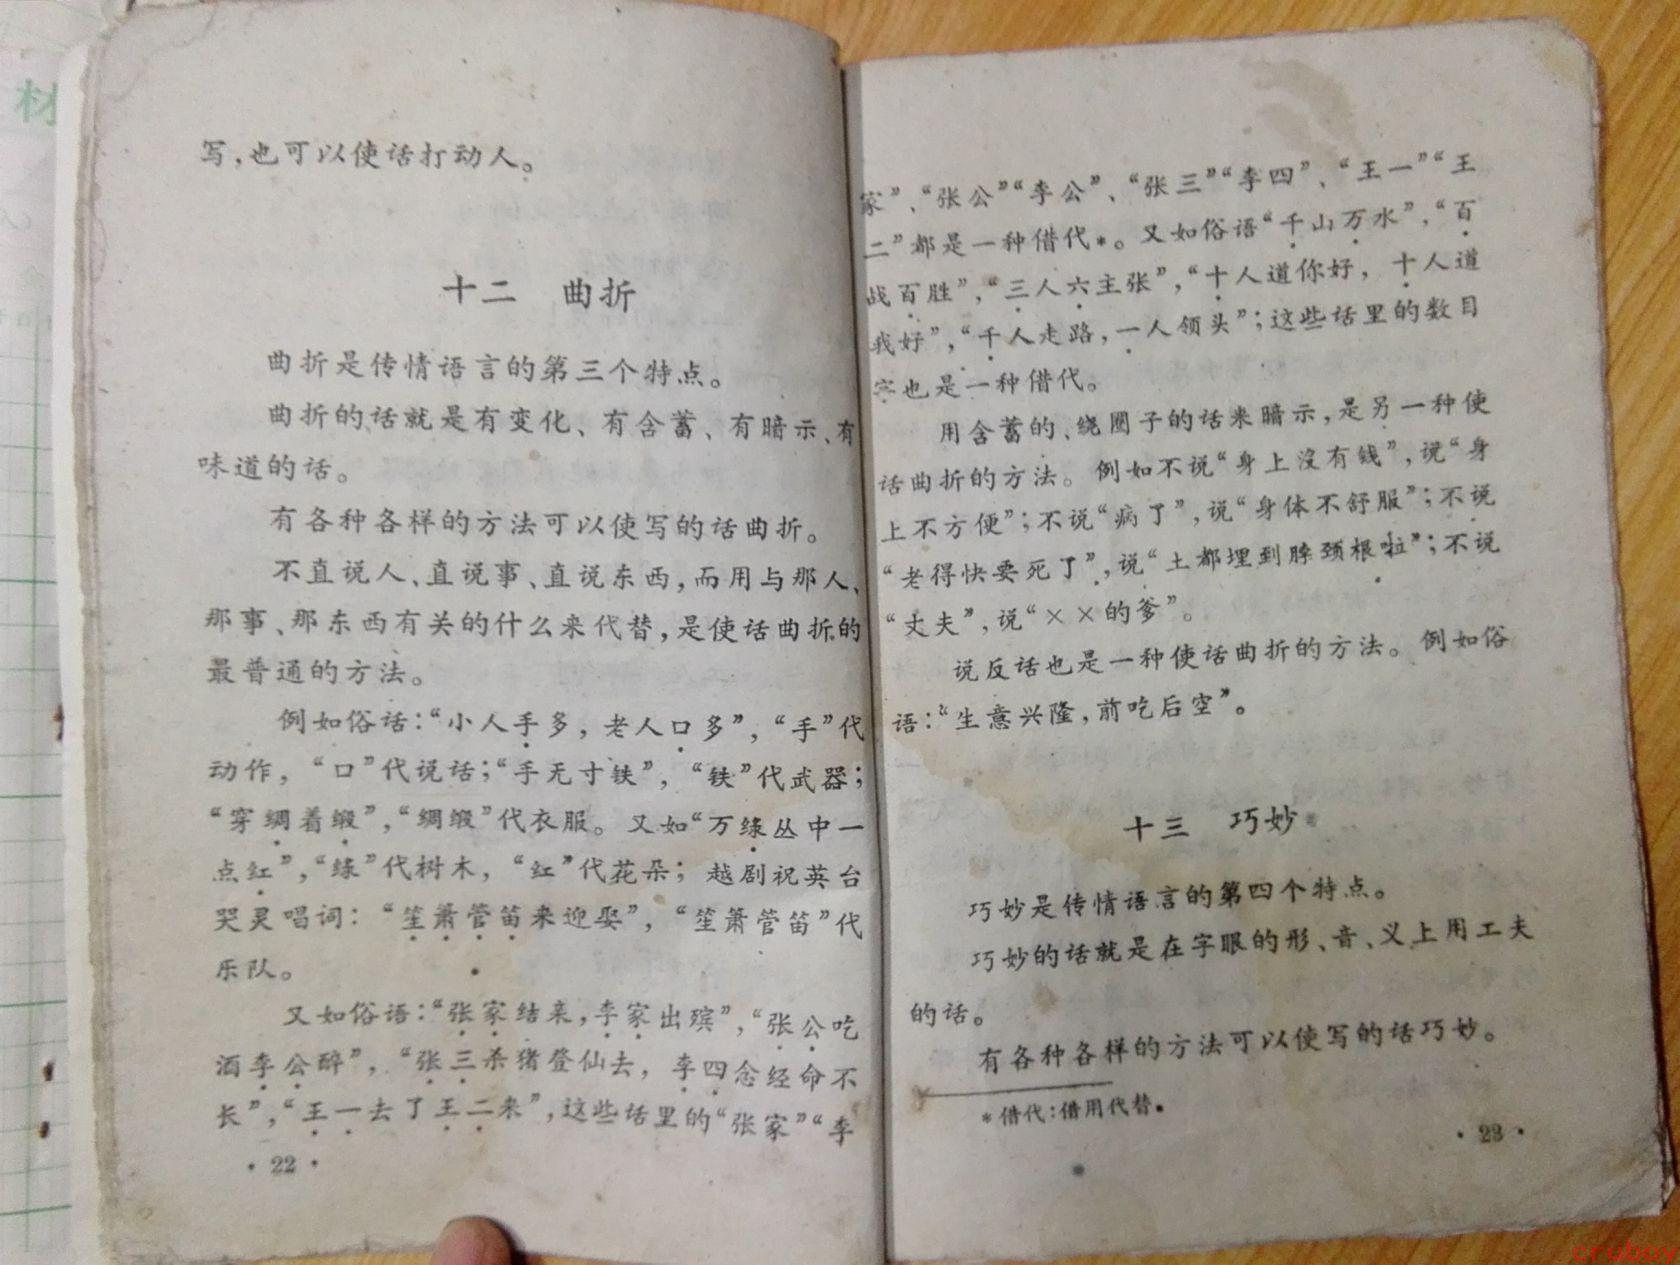 材
写，也可以使话打动人。
十二　曲折
曲折是传情语言的第三个特点。
曲折的话就是有变化、有含蓄、有暗示、有
味道的话。
有各种各样的方法可以使写的话曲折。
不直说人、直说事、直说东西，而用与那人、
那事、那东西有关的什么来代替，是使话曲折的
最普通的方法。
例如俗话：“小人手多，老人口多”，“手”代
动作，“口”代说话；“手无寸铁”，“铁”代武器；
“穿绸着缎”，“绸缎”代衣服。又如“万绿丛中一
点红”，“绿”代树木，“红”代花朵；越剧祝英台
哭灵唱词：“笙箫管笛来迎娶”，“笙箫管笛”代
乐队。
又如俗语：“张家结亲，李家出殡”，“张公吃
酒李公醉”，“张三杀猪登仙去，李四念经命不
长”，“王一去了王二来”，这些话里的“张家”“李
· 22 ·
家”、“张公”“李公”、“张三”“李四”、“王一”“王
二”都是一种借代*。又如俗语“千山万水”，“百
战百胜”，“三人六主张”，“十人道你好，十人道
我好”，“千人走路，一人领头”；这些话里的数目
字也是一种借代。
用含蓄的、绕圈子的话来暗示，是另一种使
话曲折的方法。例如不说“身上没有钱”，说“身
上不方便”；不说“病了”，说“身体不舒服”；不说
“老得快要死了”，说“土都埋到脖颈根啦”；不说
“丈夫”，说“××的爹”。
说反话也是一种使话曲折的方法。例如俗
语：“生意兴隆，前吃后空”。
十三　巧妙
巧妙是传情语言的第四个特点。
巧妙的话就是在字眼的形、音、义上用工夫
的话。
有各种各样的方法可以使写的话巧妙。
*借代：借用代替。
· 23 ·
cruboy